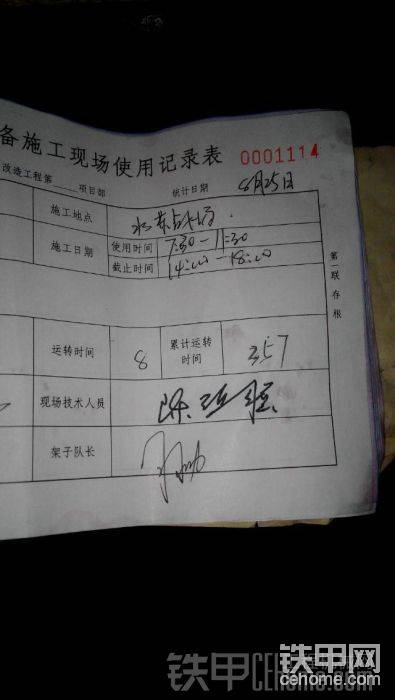 备施工现场使用记录表 0001114
改造工程第 项目部 统计日期 8月25日
施工地点
施工日期 使用时间 7:30-11:30
截止时间 14:00-18:00
第一联存根
运转时间 8 累计运转时间 357
现场技术人员
架子队长
铁甲网
cehome.com